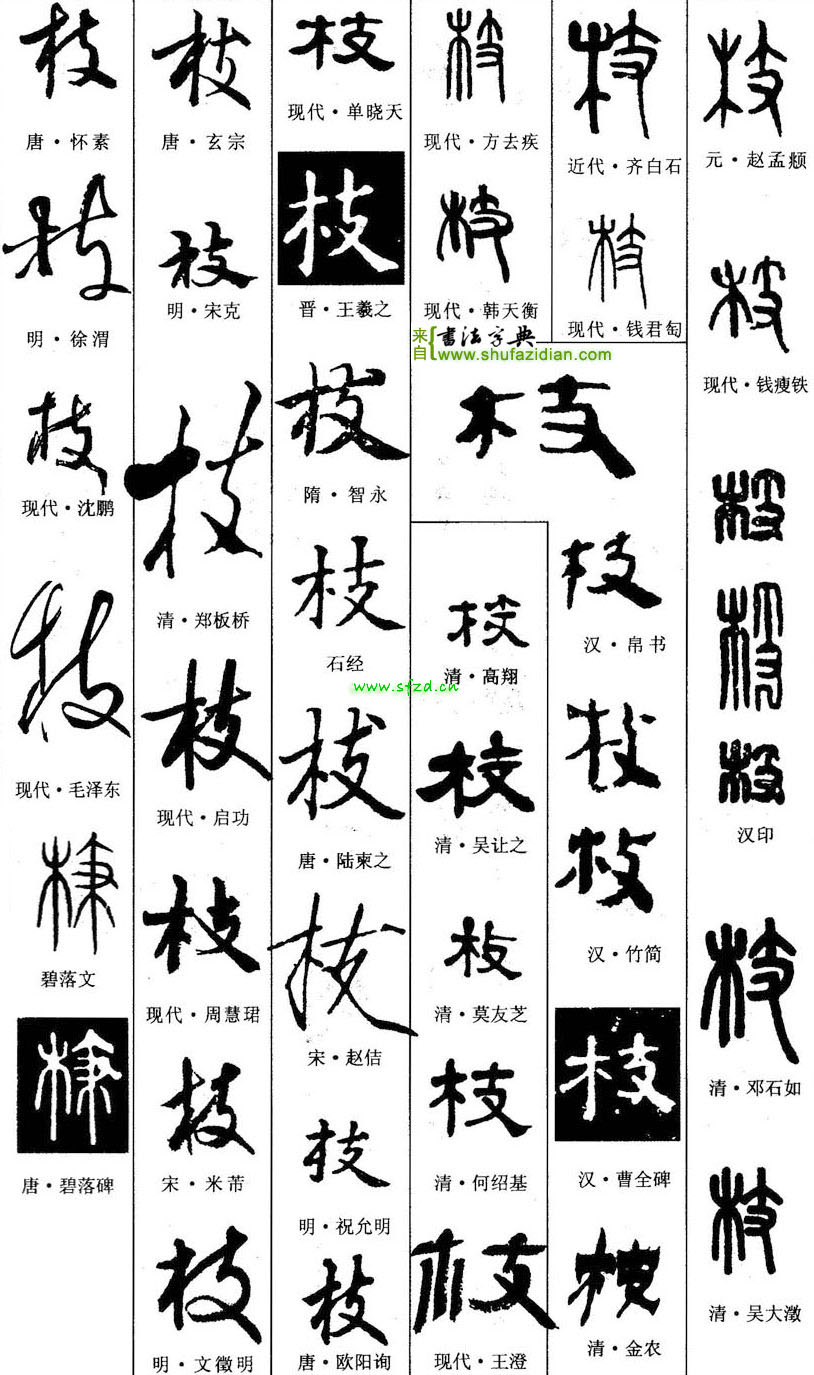 枝
元·赵孟頫
枝
现代·钱瘦铁
枝
枝
枝
汉印
枝
清·邓石如
枝
清·吴大澂
枝
近代·齐白石
枝
现代·钱君匋
枝
现代·方去疾
枝
现代·韩天衡
来自{书法字典
www.shufazidian.com
枝
枝
汉·帛书
枝
枝
汉·竹简
枝
汉·曹全碑
枝
清·金农
枝
清·高翔
枝
清·吴让之
枝
清·莫友芝
枝
清·何绍基
枝
现代·王澄
枝
现代·单晓天
枝
晋·王羲之
枝
隋·智永
枝
石经
www.sfzd.cn
枝
唐·陆柬之
枝
宋·赵佶
枝
明·祝允明
枝
唐·欧阳询
枝
唐·玄宗
枝
明·宋克
枝
清·郑板桥
枝
现代·启功
枝
现代·周慧珺
枝
宋·米芾
枝
明·文徵明
枝
唐·怀素
枝
明·徐渭
枝
现代·沈鹏
枝
现代·毛泽东
枝
碧落文
枝
唐·碧落碑